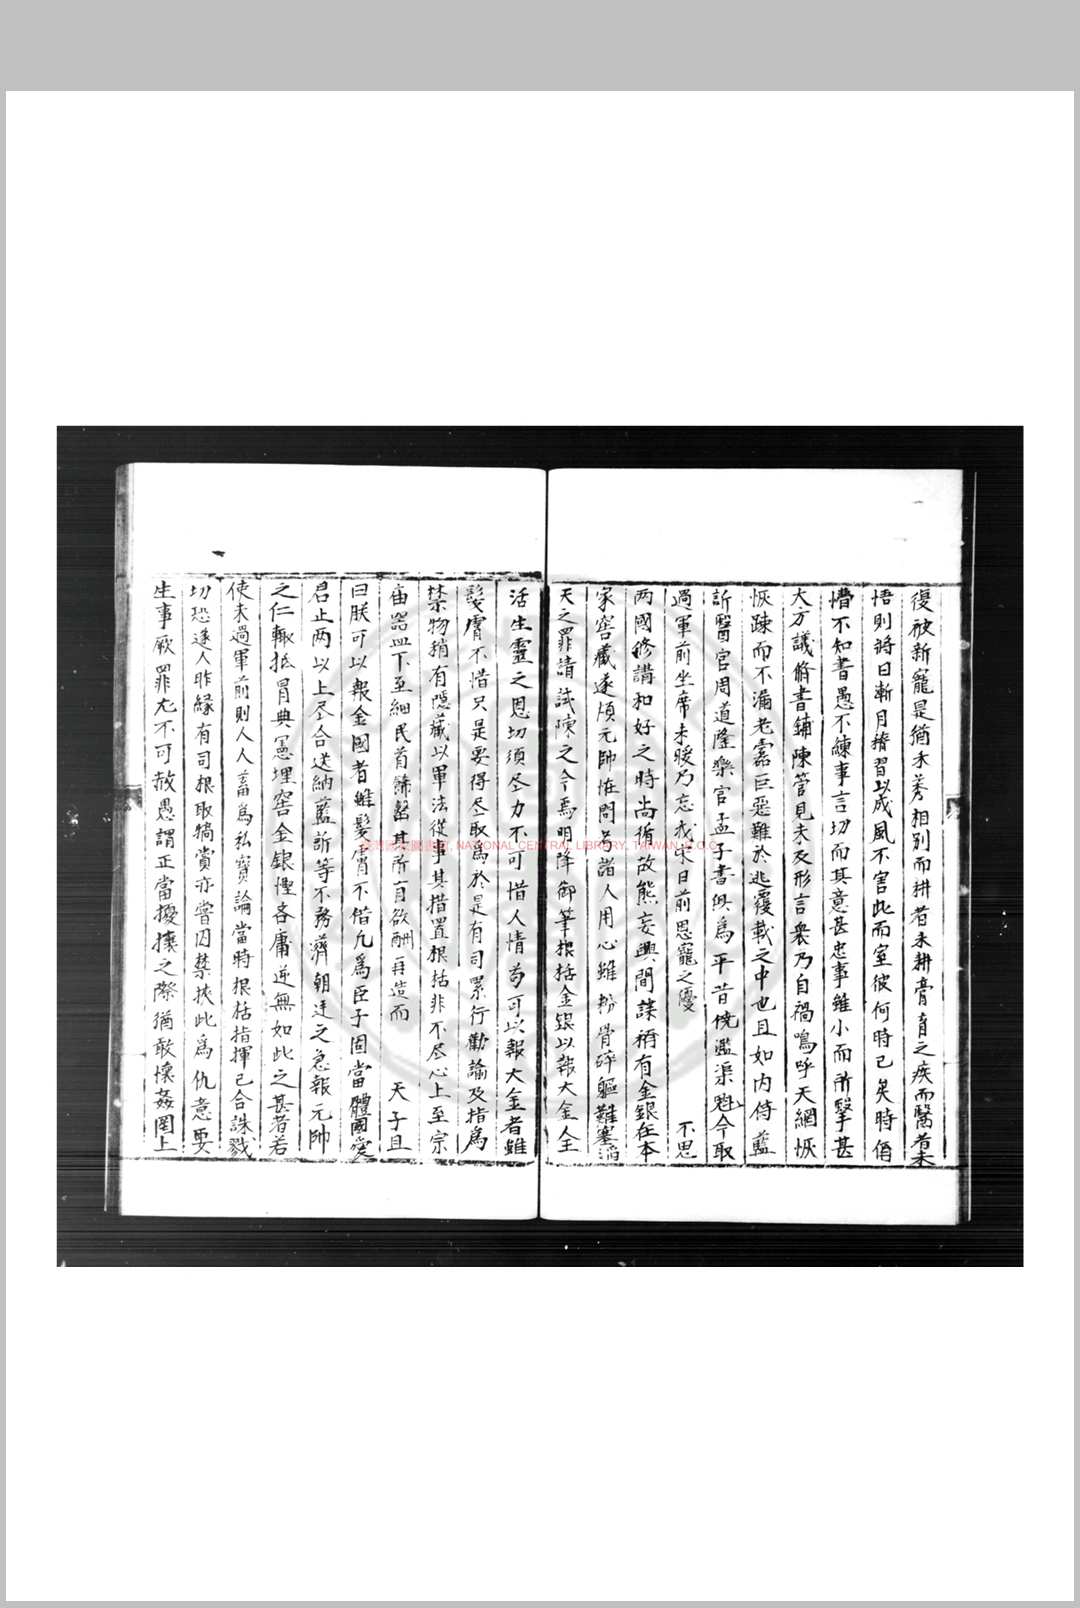 復被新寵是猶禾莠相別而耕者未耕膏肓之疾而醫者未
悟則將日漸月積習以成風不害此而室彼何時已矣時偁
懵不知書愚不練事言切而其意甚忠事雖小而所擊甚
大方議脩書鋪陳管見未及形言衆乃自禍嗚呼天網恢
恢踈而不漏老姦巨惡難於逃覆載之中也且如內侍藍
訢醫官周道隆樂官孟子書俱為平昔僥濫渠魁今取
過軍前坐席未暖乃忘我宋日前恩寵之優　不思
两國修講和好之時尚循故態妄興間諜稱有金銀在本
家窖藏遂煩元帥怪問另諸人用心雖粉骨碎軀難塞滔
天之罪請試陳之今焉明降御筆根括金銀以報大金人全
活生靈之恩切須尽力不可惜人情苟可以報大金者雖
髮膚不惜只是要得尽取為於是有司累行勸諭及指為
禁物稍有隱藏以軍法從事其措置根括非不尽心上至宗
庙器皿下至細民首飾罄其所有欲酬再造而　天子且
曰朕可以報金國者雖髮膚不惜凡為臣子固當體國愛
君止两以上尽合送納藍訢等不務濟朝廷之急報元帥
之仁輙抵冒典憲埋窖金銀慳吝庸逆無如此之甚者若
使未過軍前則人人畜為私寶論當時根括指揮已合誅戮
切恐逐人昨緣有司根取犒賞亦嘗囚禁挾此為仇意要
生事厥罪尤不可赦愚謂正當擾攘之際猶敢懷姦罔上
NATIONAL CENTRAL LIBRARY, TAIWAN, R.O.C.